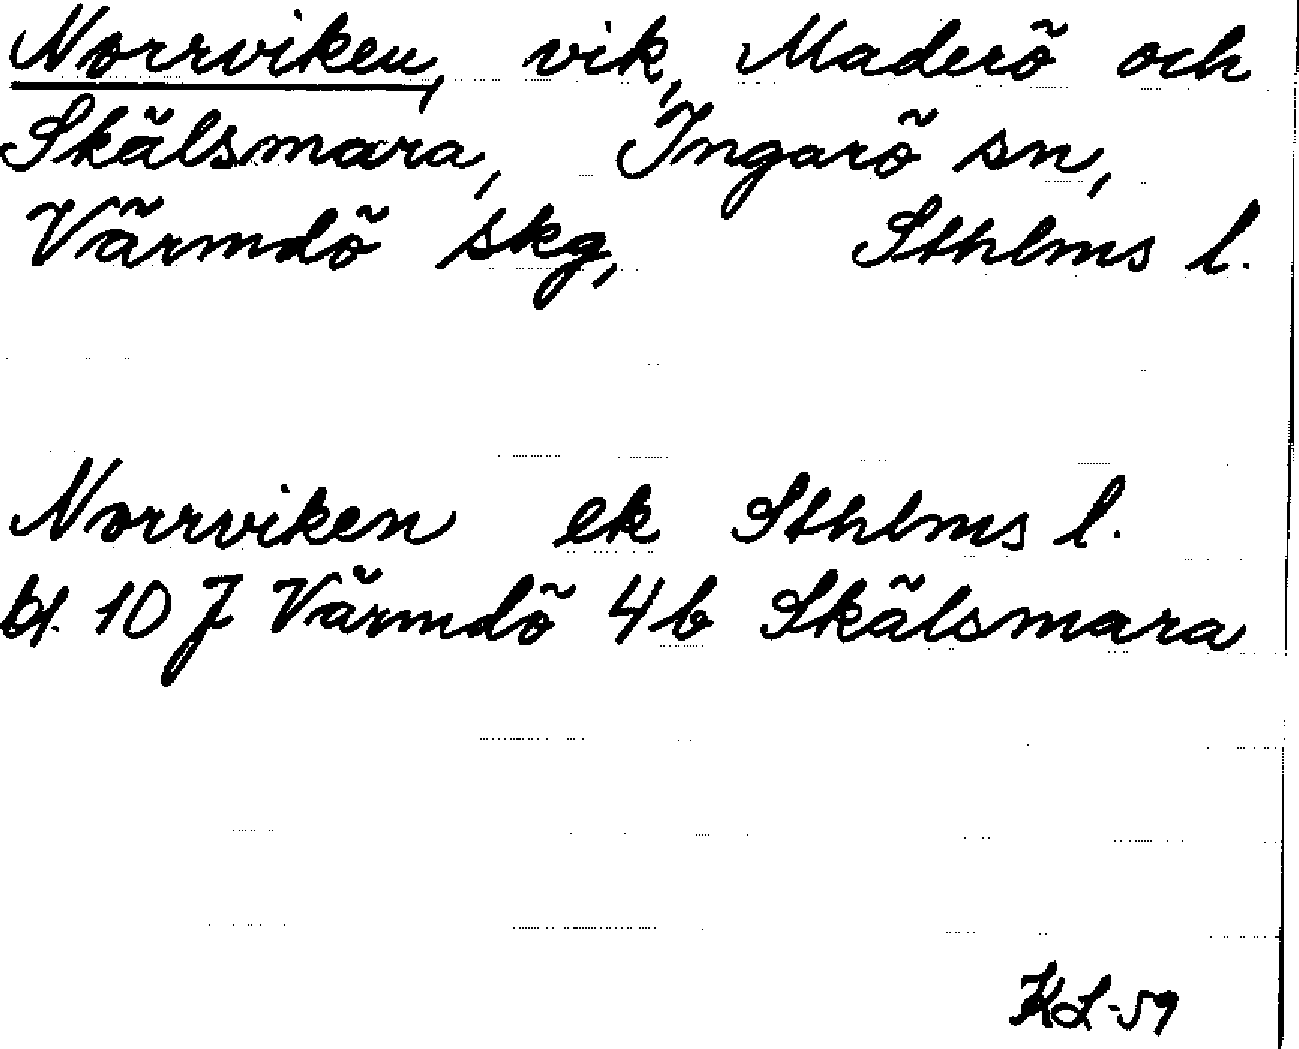 Norrviken, vik, Maderö och
Skälsmara, Ingarö sn,
Värmdö skg, Sthlms l.
Norrviken ek Sthlms l.
bl. 10 J Värmdö 4b Skälsmara
KL-59